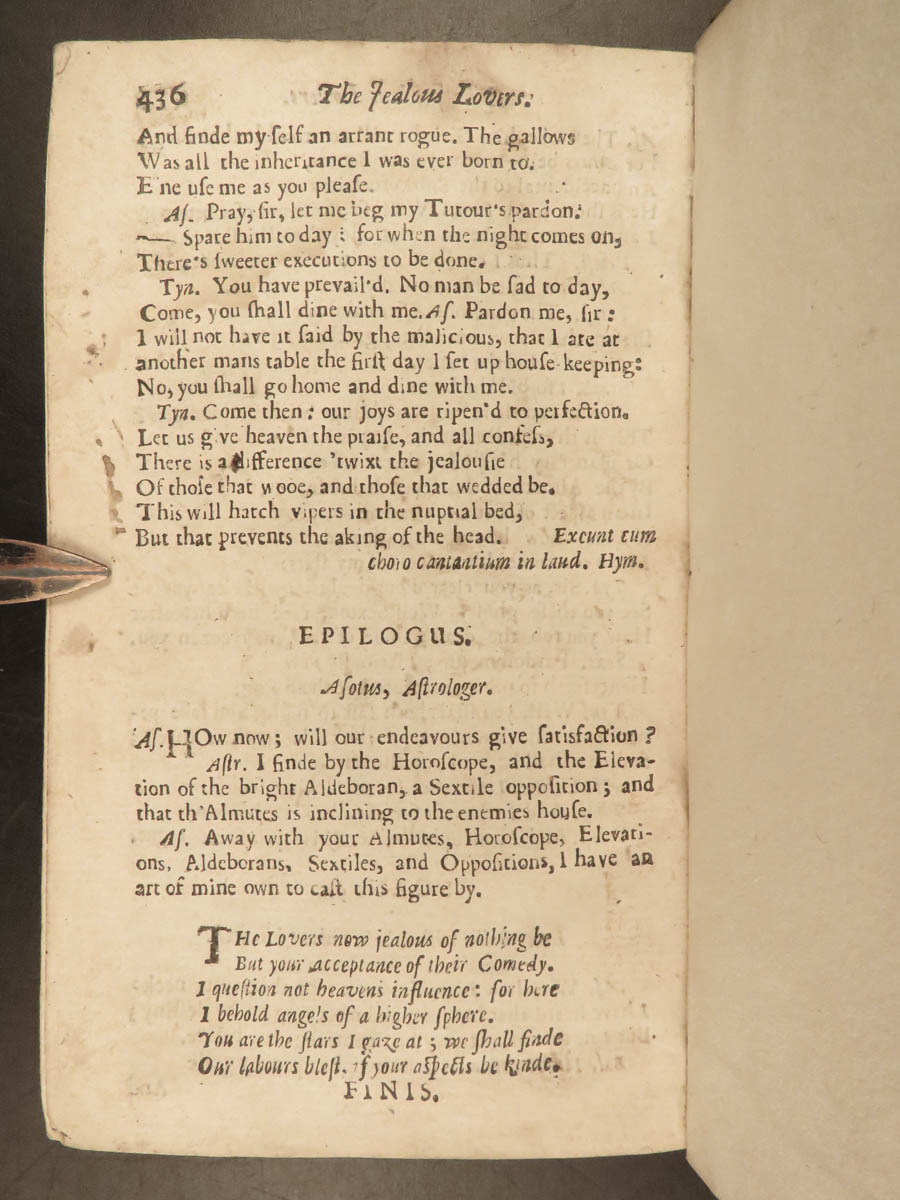 436 The Jealous Lovers.
And finde my self an arrant rogue. The gallows
Was all the inheritance I was ever born to.
E'ne uſe me as you pleaſe.
Aſ. Pray, ſir, let me beg my Tutour's pardon:
—— Spare him to day : for when the night comes on,
There's ſweeter executions to be done.
Tyn. You have prevail'd. No man be ſad to day,
Come, you ſhall dine with me. Aſ. Pardon me, ſir :
I will not have it ſaid by the malicious, that I ate at
another mans table the firſt day I ſet up houſe-keeping:
No, you ſhall go home and dine with me.
Tyn. Come then : our joys are ripen'd to perfection.
Let us give heaven the praiſe, and all confeſs,
There is a difference 'twixt the jealouſie
Of thoſe that wooe, and thoſe that wedded be.
This will hatch vipers in the nuptial bed,
But that prevents the aking of the head. Exeunt cum
choro cantantium in laud. Hym.
EPILOGUS.
Aſotus, Aſtrologer.
Aſ. HOw now ; will our endeavours give ſatisfaction ?
Aſtr. I finde by the Horoſcope, and the Eleva-
tion of the bright Aldeboran, a Sextile oppoſition ; and
that th'Almutes is inclining to the enemies houſe.
Aſ. Away with your Almutes, Horoſcope, Elevati-
ons, Aldeborans, Sextiles, and Oppoſitions, I have an
art of mine own to caſt this figure by.
THe Lovers now jealous of nothing be
But your acceptance of their Comedy.
I queſtion not heavens influence : for here
I behold angels of a higher ſphere.
You are the ſtars I gaze at ; we ſhall finde
Our labours bleſt, if your aſpects be kinde.
FINIS.